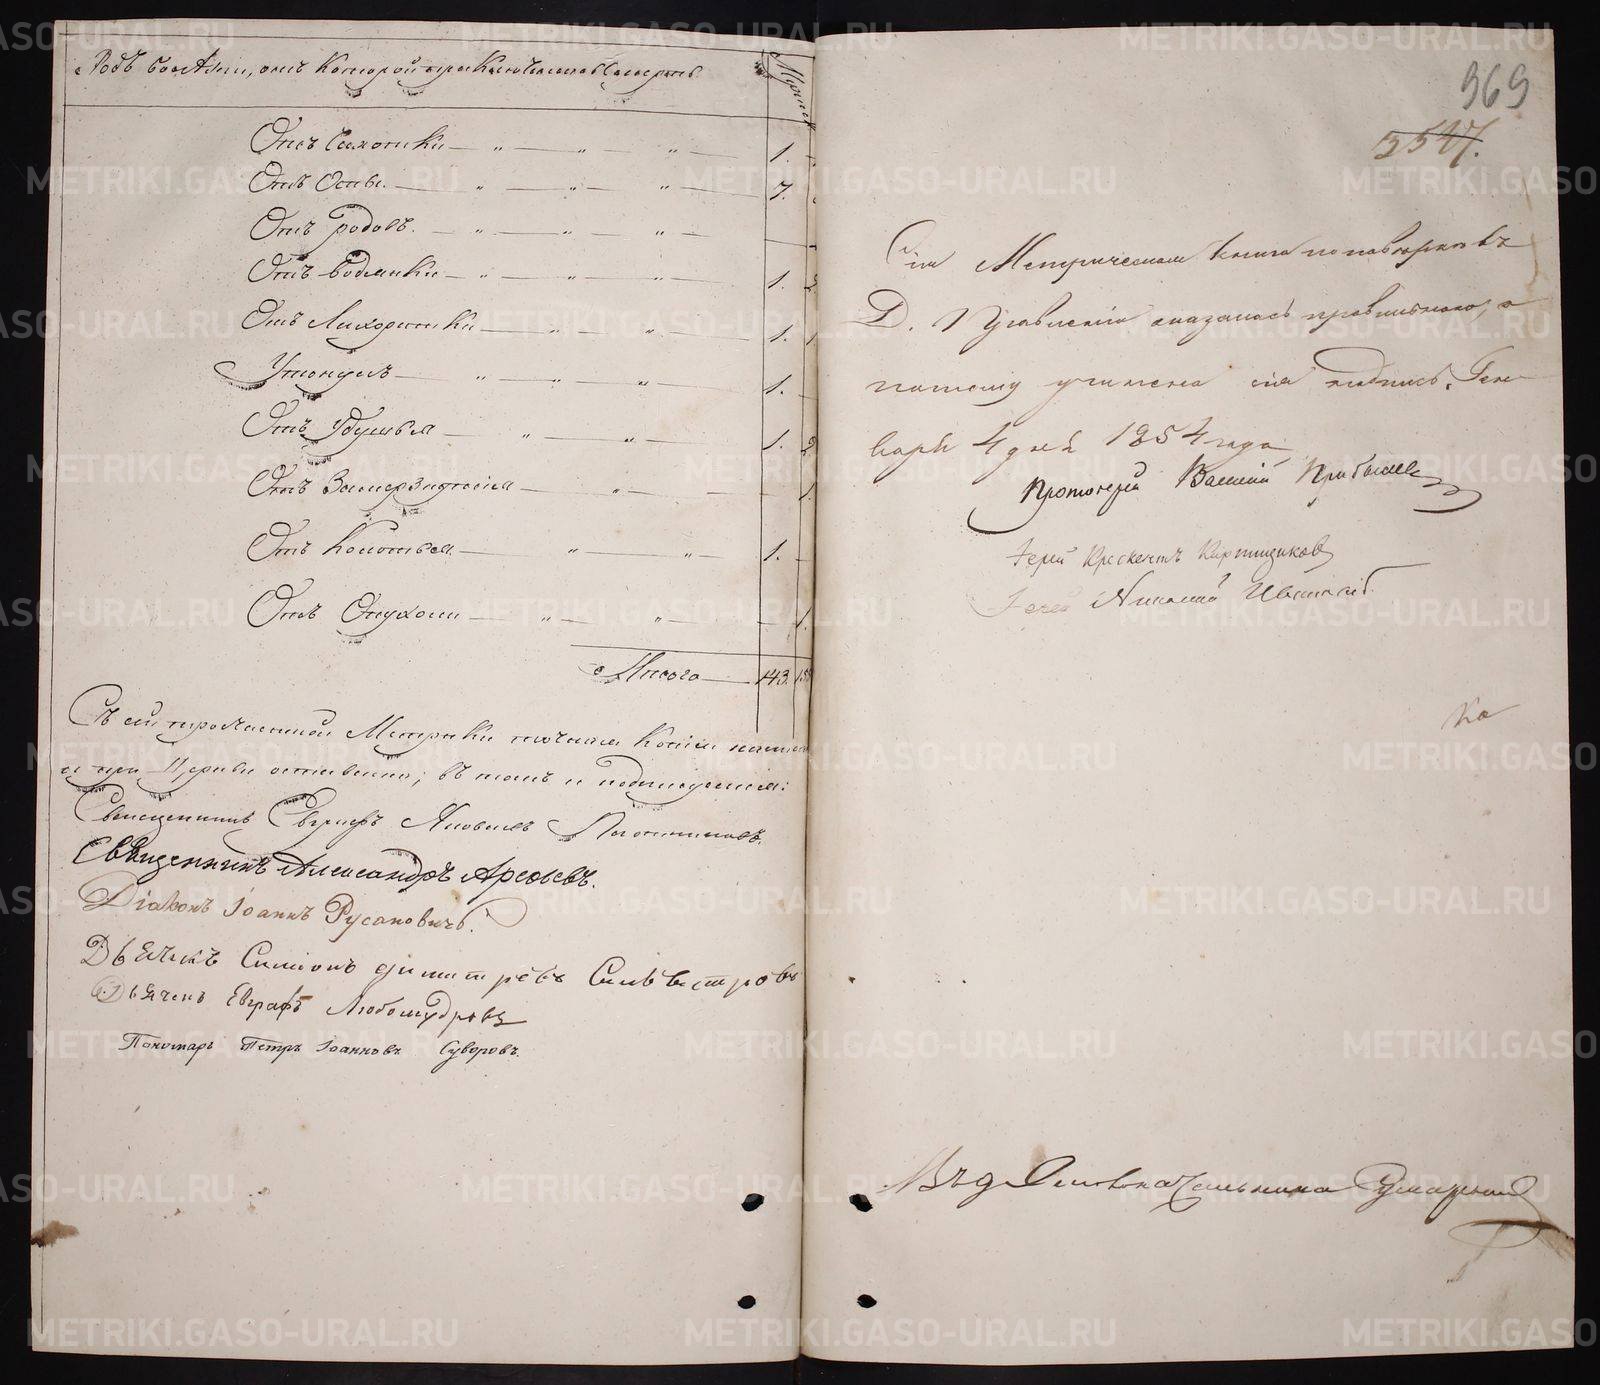 Родъ болѣзни, отъ которой приключилась смерть.
Мужеск
Отъ Сухотки — „ — „ — „ 1.
Отъ Оспы. — „ — „ — „ 7.
Отъ родовъ. — „ — „ — „ —
Отъ Водянки — „ — „ — „ 1. 2
Отъ Лихорадки — „ — „ — 1. 1
Утонулъ — „ — „ — „ — 1. —
Отъ Удушья — „ — „ — 1. 2
Отъ Замерзнутія — „ — 1.
Отъ Колотья — „ — „ — 1. —
Отъ Опухоли — „ — „ — 1.
Итого — 143.
Съ сей приходской Метрики точная копія
и при Церкви оставлена; въ томъ и подписуемся:
Священникъ Яковлевъ
Священникъ Александръ Арефьевъ.
Діаконъ Іоаннъ Русановичъ.
Дьячекъ Симіонъ Димитревъ Силвестровъ
Дьячекъ Евграфъ Любомудровъ
Пономарь Петръ Іоанновъ Суворовъ.
969
Сія Метрическая книга по повѣркѣ въ
Д. Правленіи оказалась правильною, а
потому учинена сія подпись. Ген
варя 4 дня 1854 года
Протоіерей Василій Прибылев
Іерей Крискентъ Кирпищиков
Іерей Николай
Ко
METRIKI.GASO-URAL.RU